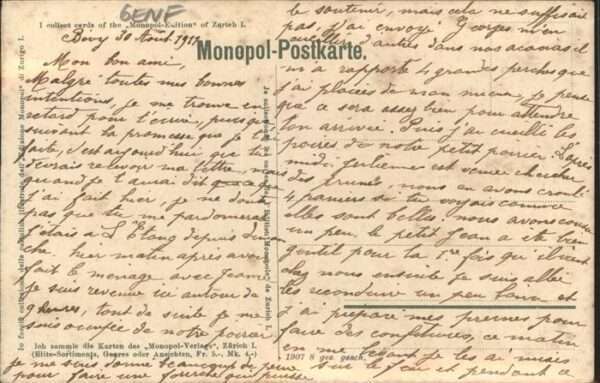 GENF
I collect cards of the „Monopol-Edition“ of Zurich I.
Monopol-Postkarte.
Bivy 30 Août 19
Mon bon ami,
Malgré toutes mes bonnes
intentions, je me trouve en
retard pour t'écrire, puisque
suivant la promesse que je
faite, c'est aujourd'hui que tu
devrais recevoir ma lettre, mais
quand je t'aurai dit
j'ai fait hier, je ne doute
pas que tu me pardonneras
j'étais à L'Etang depuis diman
che. hier matin après avoir
fait le ménage avec Jeanne
je suis revenue ici autour de
9 heures, tout de suite je me
suis occupée de notre poirier
je me suis donné beaucoup de peine
pour faire une fourche qui puisse
le soutenir, mais cela ne suffisait
pas, j'ai envoyé Georges m'en
d'autres dans nos acacias il
m'a rapporté 4 grandes perches que
j'ai placées de mon mieux, je pense
que ce sera assez bien pour attendre
ton arrivée. Puis j'ai cueilli les
poires de notre petit poirier. L'après
midi est venue chercher
des prunes, nous en avons
4 paniers si tu voyais comme
elles sont belles. nous avons
un peu. le petit Jean a été bien
gentil pour la 1re fois qu'il vient
chez nous ensuite je suis allée
les reconduire un peu et
j'ai préparé mes prunes pour
faire des confitures, ce matin
en me levant je les ai mises
sur le feu et pendant ce
Ich sammle die Karten des „Monopol-Verlags“, Zürich I.
(Elite-Sortiments, Genres oder Ansichten, Fr. 5.-, Mk. 4.-)
1907 8 ges. gesch.